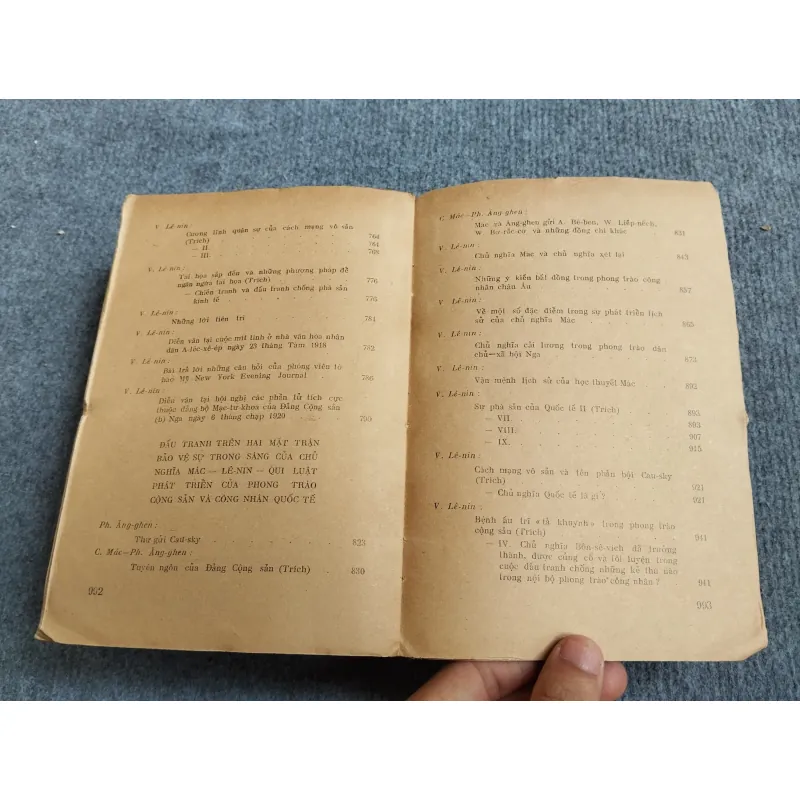 V. Lê-nin :
Cương lĩnh quân sự của cách mạng vô sản
(Trích) 764
— II. 764
— III. 768
V. Lê-nin :
Tai họa sắp đến và những phương pháp để
ngăn ngừa tai họa (Trích) 776
— Chiến tranh và đấu tranh chống phá sản
kinh tế 776
V. Lê-nin :
Những lời tiên tri 781
V. Lê-nin :
Diễn văn tại cuộc mít tinh ở nhà văn hóa nhân
dân A-lếc-xê-ép ngày 23 tháng Tám 1918 782
V. Lê-nin :
Bài trả lời những câu hỏi của phóng viên tờ
báo Mỹ New York Evening Journal 786
V. Lê-nin :
Diễn văn tại hội nghị các phần tử tích cực
thuộc đảng bộ Mạc-tư-khoa của Đảng Cộng sản
(b) Nga ngày 6 tháng chạp 1920
ĐẤU TRANH TRÊN HAI MẶT TRẬN
BẢO VỆ SỰ TRONG SÁNG CỦA CHỦ
NGHĨA MÁC — LÊ-NIN — QUI LUẬT
PHÁT TRIỂN CỦA PHONG TRÀO
CỘNG SẢN VÀ CÔNG NHÂN QUỐC TẾ
Ph. Ăng-ghen :
Thư gửi Cau-sky 823
C. Mác—Ph. Ăng-ghen :
Tuyên ngôn của Đảng Cộng sản (Trích) 830
992
C. Mác—Ph. Ăng-ghen :
Mác và Ăng-ghen gửi A. Bê-ben, W. Liếp-nếch,
W. Bơ-rắc-cơ và những đồng chí khác 831
V. Lê-nin :
Chủ nghĩa Mác và chủ nghĩa xét lại 843
V. Lê-nin :
Những ý kiến bất đồng trong phong trào công
nhân châu Âu 857
V. Lê-nin :
Về một số đặc điểm trong sự phát triển lịch
sử của chủ nghĩa Mác 865
V. Lê-nin :
Chủ nghĩa cải lương trong phong trào dân
chủ—xã hội Nga 873
V. Lê-nin :
Vận mệnh lịch sử của học thuyết Mác 892
V. Lê-nin :
Sự phá sản của Quốc tế II (Trích) 893
— VII. 893
— VIII. 907
— IX. 915
V. Lê-nin :
Cách mạng vô sản và tên phản bội Cau-sky
(Trích) 921
— Chủ nghĩa Quốc tế là gì ? 921
V. Lê-nin :
Bệnh ấu trĩ «tả khuynh» trong phong trào
cộng sản (Trích) 941
— IV. Chủ nghĩa bôn-sê-vích đã trưởng
thành, được củng cố và tôi luyện trong
cuộc đấu tranh chống những kẻ thù nào
trong nội bộ phong trào công nhân ? 941
993